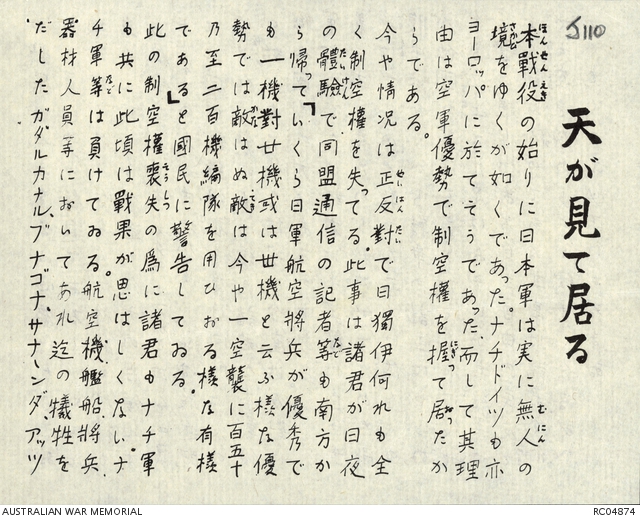 J110
天が見て居る
本戰役の始りに日本軍は実に無人の
境をゆくが如くであった。ナチドイツも亦
ヨーロッパに於てそうであった。而して其理
由は空軍優勢で制空權を握って居たか
らである。
今や情況は正反對で日獨伊何れも全
く制空權を失ってる。此事は諸君が日夜
の體驗で同盟通信の記者等も南方か
ら帰って「いくら日軍航空將兵が優秀で
も一機對廿機或は丗機と云ふ様な優
勢では敵はぬ敵は今や一空襲に百五十
乃至二百機編隊を用ひおる様な有様
である」と國民に警告してゐる。
此の制空權喪失の爲に諸君もナチ軍
も共に此頃は戰果が思はしくない。ナ
チ軍等は負けてゐる。航空機、艦船、將兵、
器材人員等においてあれ迄の犠牲を
だしたガダルカナル、ブナゴナ、サナーンダ、アッツ
AUSTRALIAN WAR MEMORIAL
RC04874